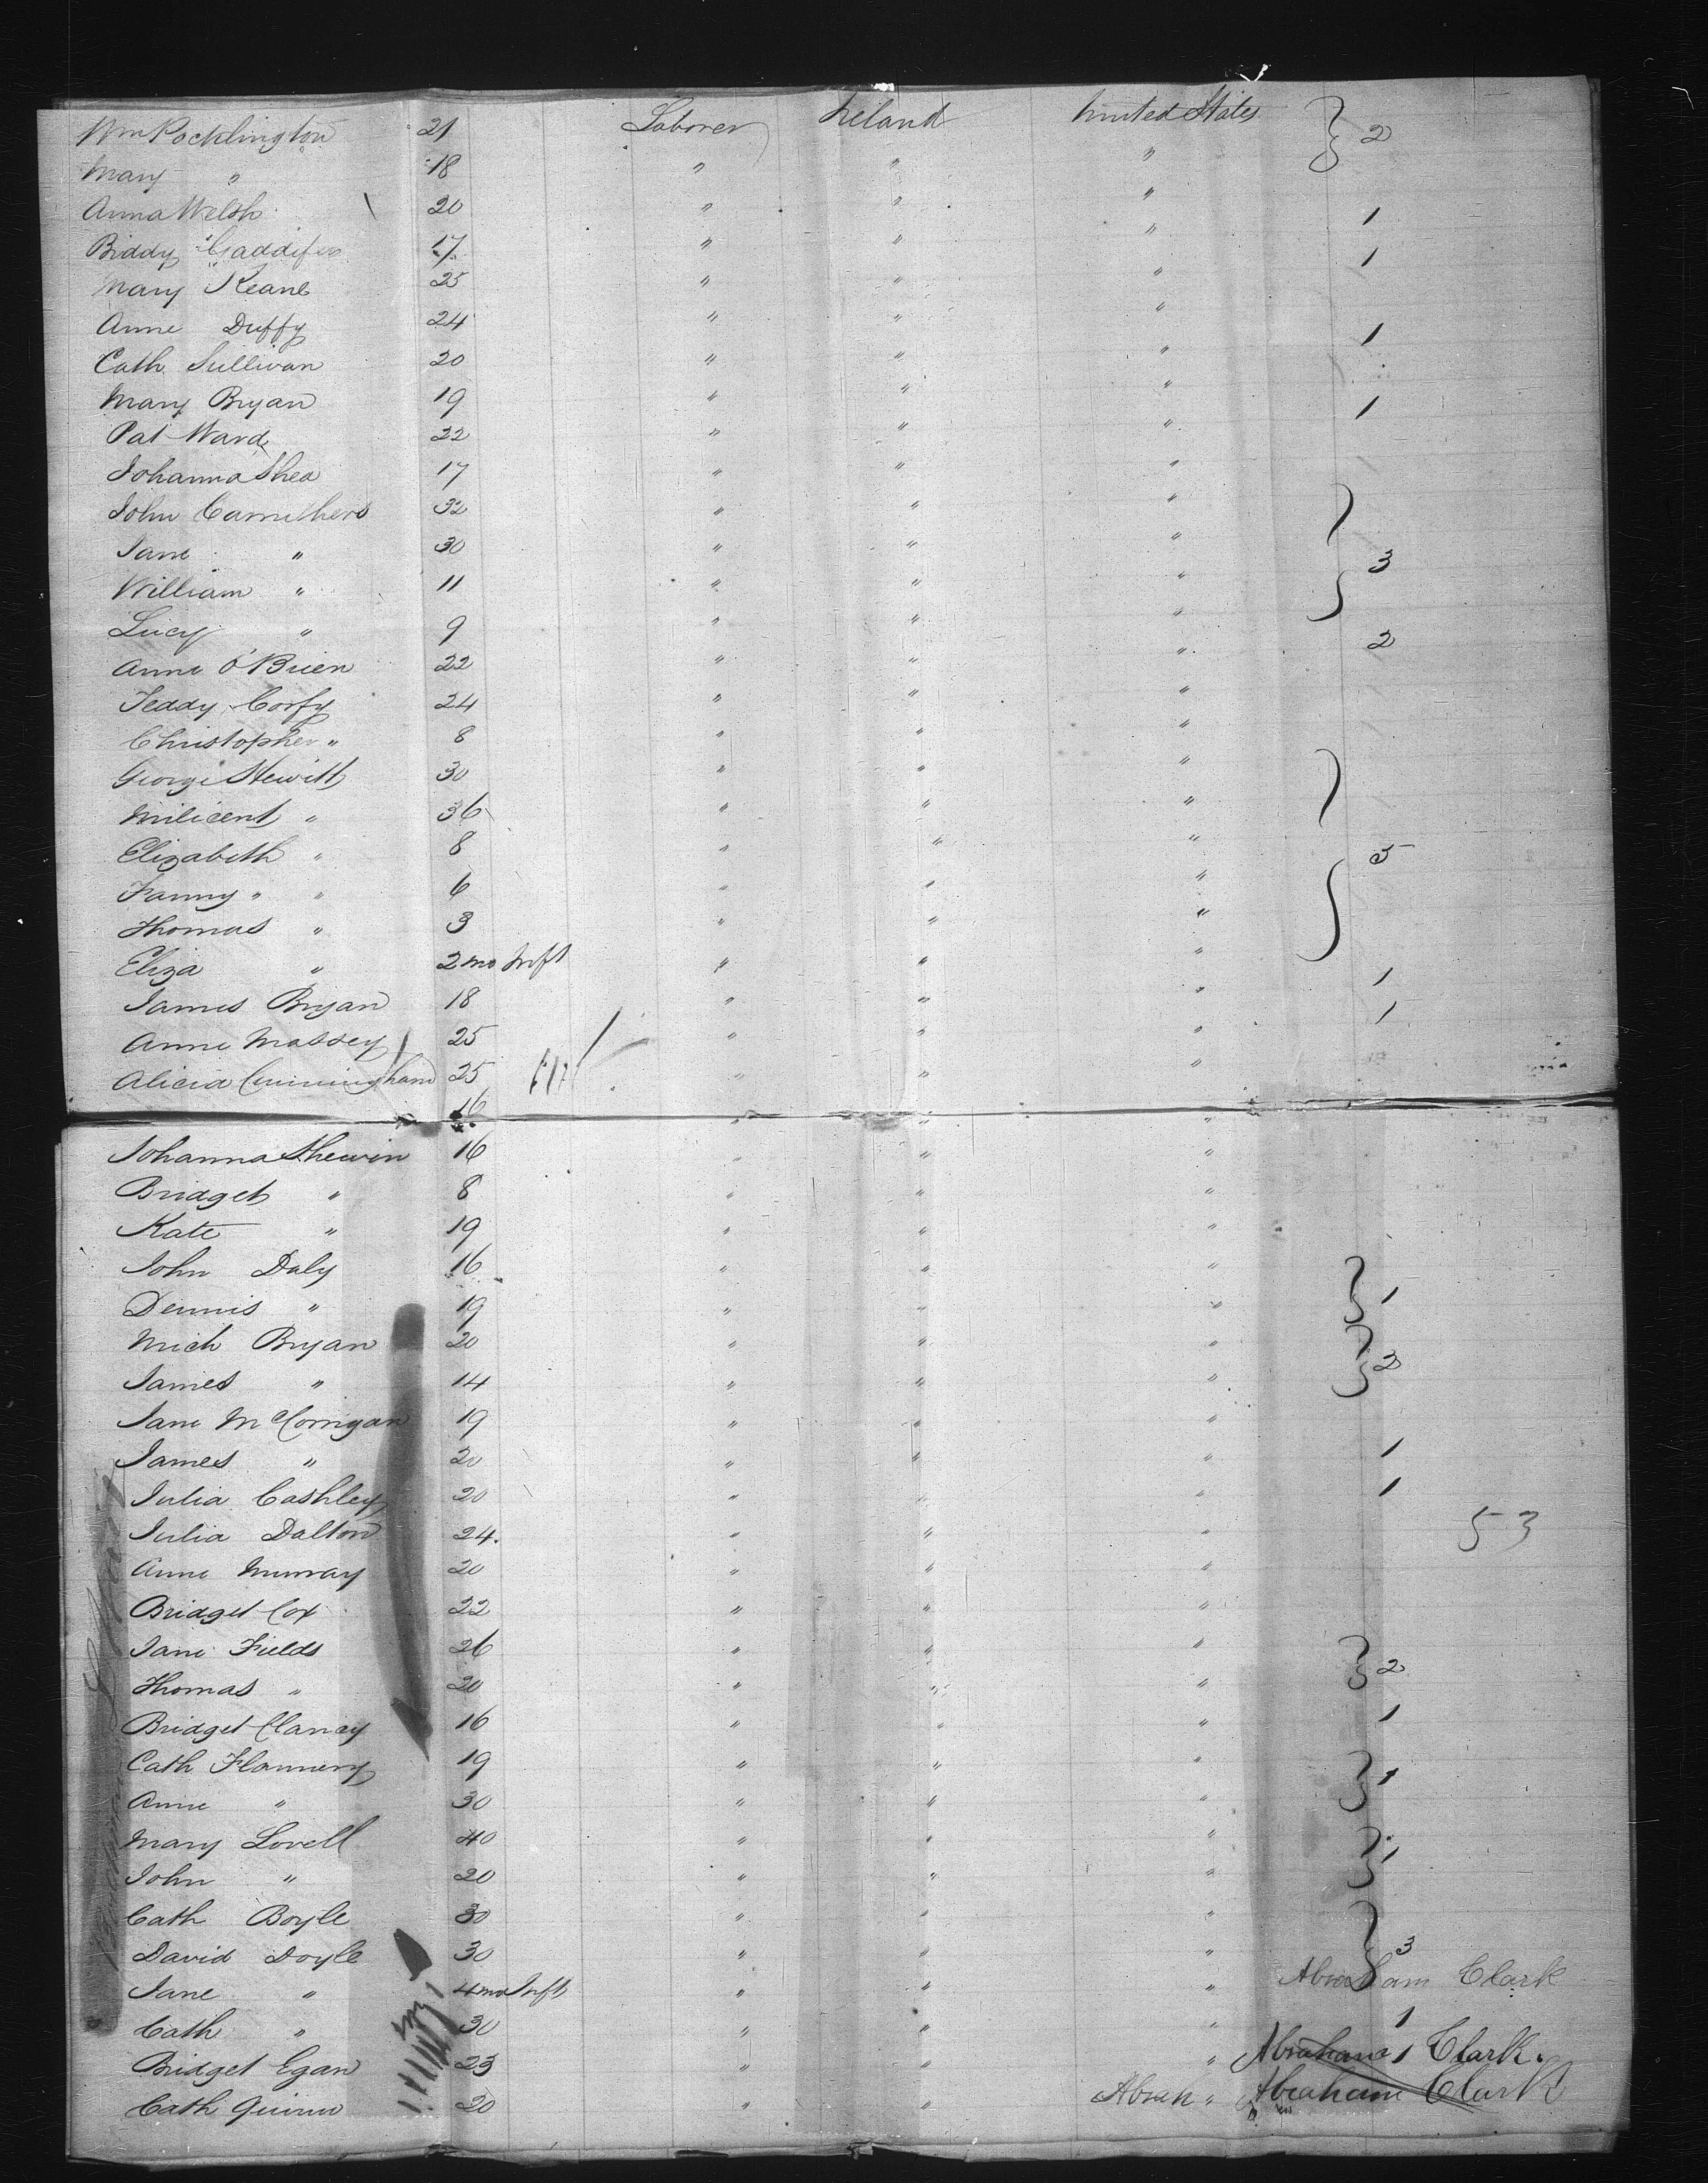 Wm Pocklington 21 Laborer Ireland United States 2
Mary " 18 " " "
Anna Welsh 20 " " " 1
Biddy 17 " " " 1
Mary Keane 25 " " "
Anne Duffy 24 " " " 1
Cath Sullivan 20 " " "
Mary Bryan 19 " " " 1
Pat Ward 22 " " "
Johanna Shea 17 " " "
John Carruthers 32 " " "
Jane " 30 " " " 3
William " 11 " " "
Lucy " 9 " " " 2
Anne O'Brien 22 " " "
Teddy Corfy 24 " " "
Christopher " 8 " " "
George Hewitt 30 " " "
Milicent " 36 " " "
Elizabeth " 8 " " " 5
Fanny " " 6 " " "
Thomas " 3 " " "
Eliza " 2 mo Inft " " " 1
James Bryan 18 " " " 1
Anne Massey 25 " " "
Alicia Cunningham 25 " " "
16 " " "
Johanna Shewin 16 " " "
Bridget " 8 " " "
Kate " 19 " " "
John Daly 16 " " "
Dennis " 19 " " " 1
Mich Bryan 20 " " "
James " 14 " " " 2
Jane McCorrigan 19 " " "
James " 20 " " " 1
Julia Cashley 20 " " " 1
Julia Dalton 24. " " " 53
Anne Murray 20 " " "
Bridget Cox 22 " " "
Jane Fields 26 " " "
Thomas " 20 " " " 2
Bridget Clancy 16 " " " 1
Cath Flannery 19 " " " 1
Anne " 30 " " "
Mary Lovell 40 " " " 1
John " 20 " " "
Cath Boyle 30 " " "
David Doyle 30 " " " 3
Jane " 4 mo Inft " " " Abraham Clark
Cath " 30 " " " 1
Bridget Egan 23 " " " Abraham 1 Clark.
Cath Quinn 20 " " Abrah " Abraham Clark